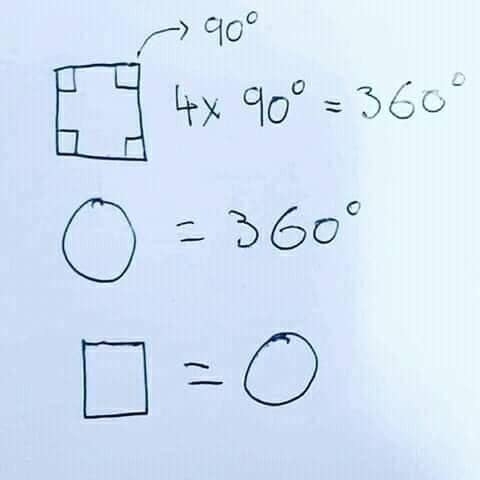 90°
4x 90° = 360°
= 360°
=